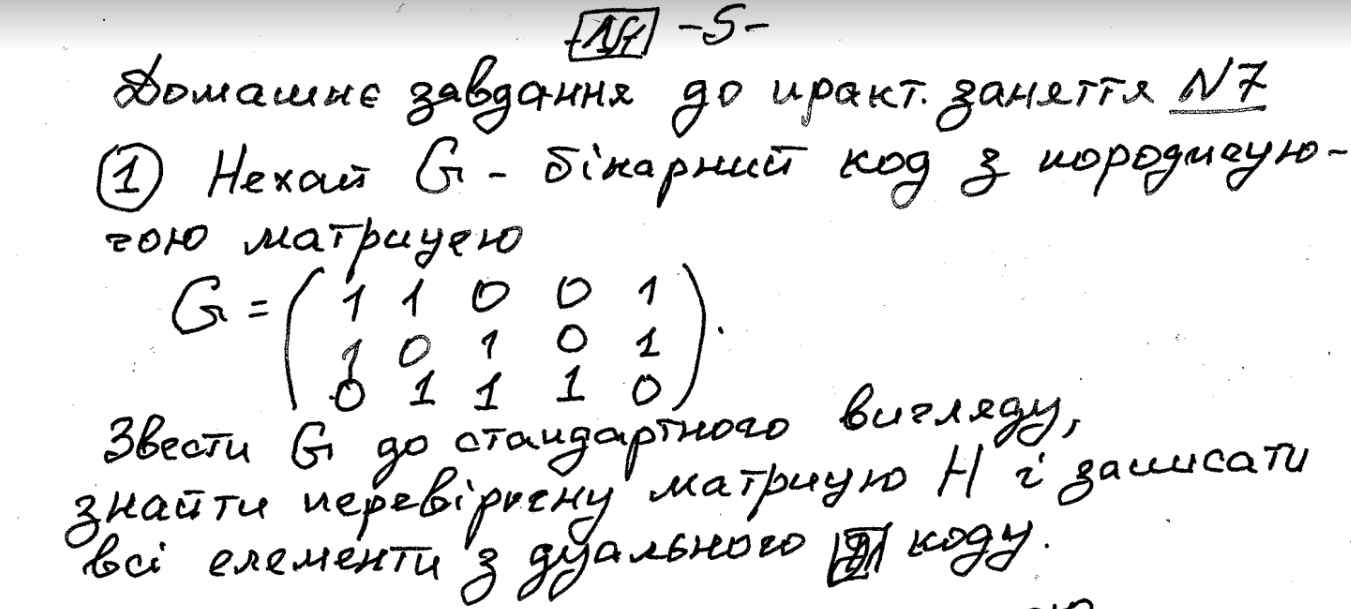 -5-
Домашнє завдання до практ. заняття N7
① Нехай G - бінарний код з породжую-
чою матрицею
G = ( 1 1 0 0 1
1 0 1 0 1
0 1 1 1 0 ).
Звести G до стандартного вигляду,
знайти перевірчну матрицю H і записати
всі елементи з дуального коду.